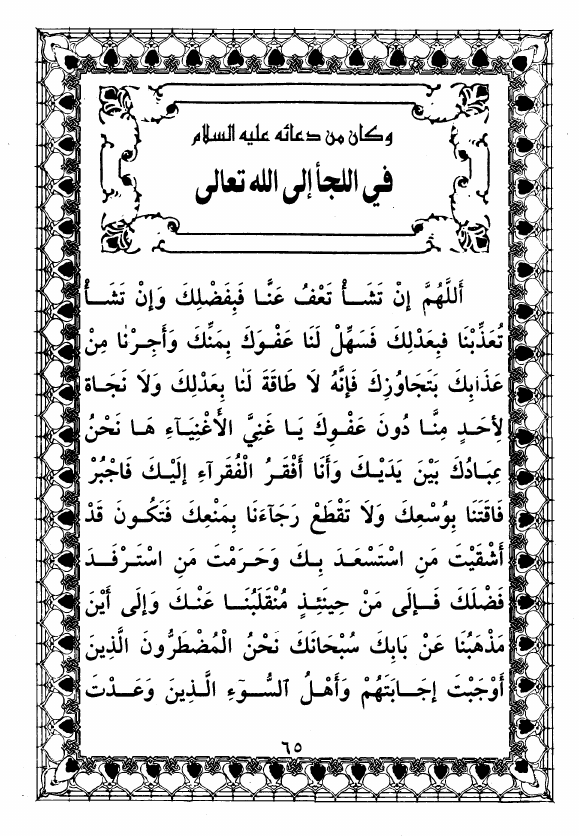 وكان من دعائه عليه السلام
في اللجأ إلى الله تعالى
أَللَّهُمَّ إِنْ تَشَــأْ تَعْفُ عَنَّــا فَبِفَضْلِكَ وَإِنْ تَشَــأْ
تُعَذِّبْنَا فَبِعَدْلِكَ فَسَهِّلْ لَنَا عَفْـوَكَ بِمَنِّكَ وَأَجِـرْنَا مِنْ
عَذَابِكَ بَتَجَاوُزِكَ فَإِنَّهُ لَا طَاقَةَ لَنَا بِعَدْلِكَ وَلَا نَجَـاةَ
لِأَحَـدٍ مِنَّـا دُونَ عَفْـوِكَ يَـا غَنِيَّ الأَغْنِيَـآءِ هَـا نَحْنُ
عِبَـادُكَ بَيْنَ يَدَيْـكَ وَأَنَا أَفْقَـرُ الْفُقَرآءِ إلَيْـكَ فَاجْبُرْ
فَاقَتَنَا بِوُسْعِكَ وَلَا تَقْطَعْ رَجَآءَنَا بِمَنْعِكَ فَتَكُـونَ قَدْ
أَشْقَيْتَ مَنِ اسْتَسْعَـدَ بِـكَ وَحَـرَمْتَ مَنِ اسْتَـرْفَـدَ
فَضْلَكَ فَـإلَى مَنْ حِينَئِذٍ مُنْقَلَبُنَـا عَنْـكَ وَإلَى أَيْنَ
مَذْهَبُنَا عَنْ بَابِكَ سُبْحَانَكَ نَحْنُ الْمُضْطَرُّونَ الَّذِينَ
أَوْجَبْتَ إجَـابَتَهُمْ وَأَهْـلُ السُّـوءِ الَّـذِينَ وَعَـدْتَ
٦٥